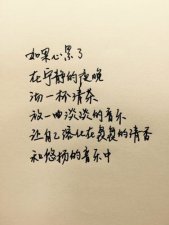 如果心累了
在宁静的夜晚
沏一杯清茶
放一曲淡淡的音乐
让自己溶化在袅袅的清香
和悠扬的音乐中